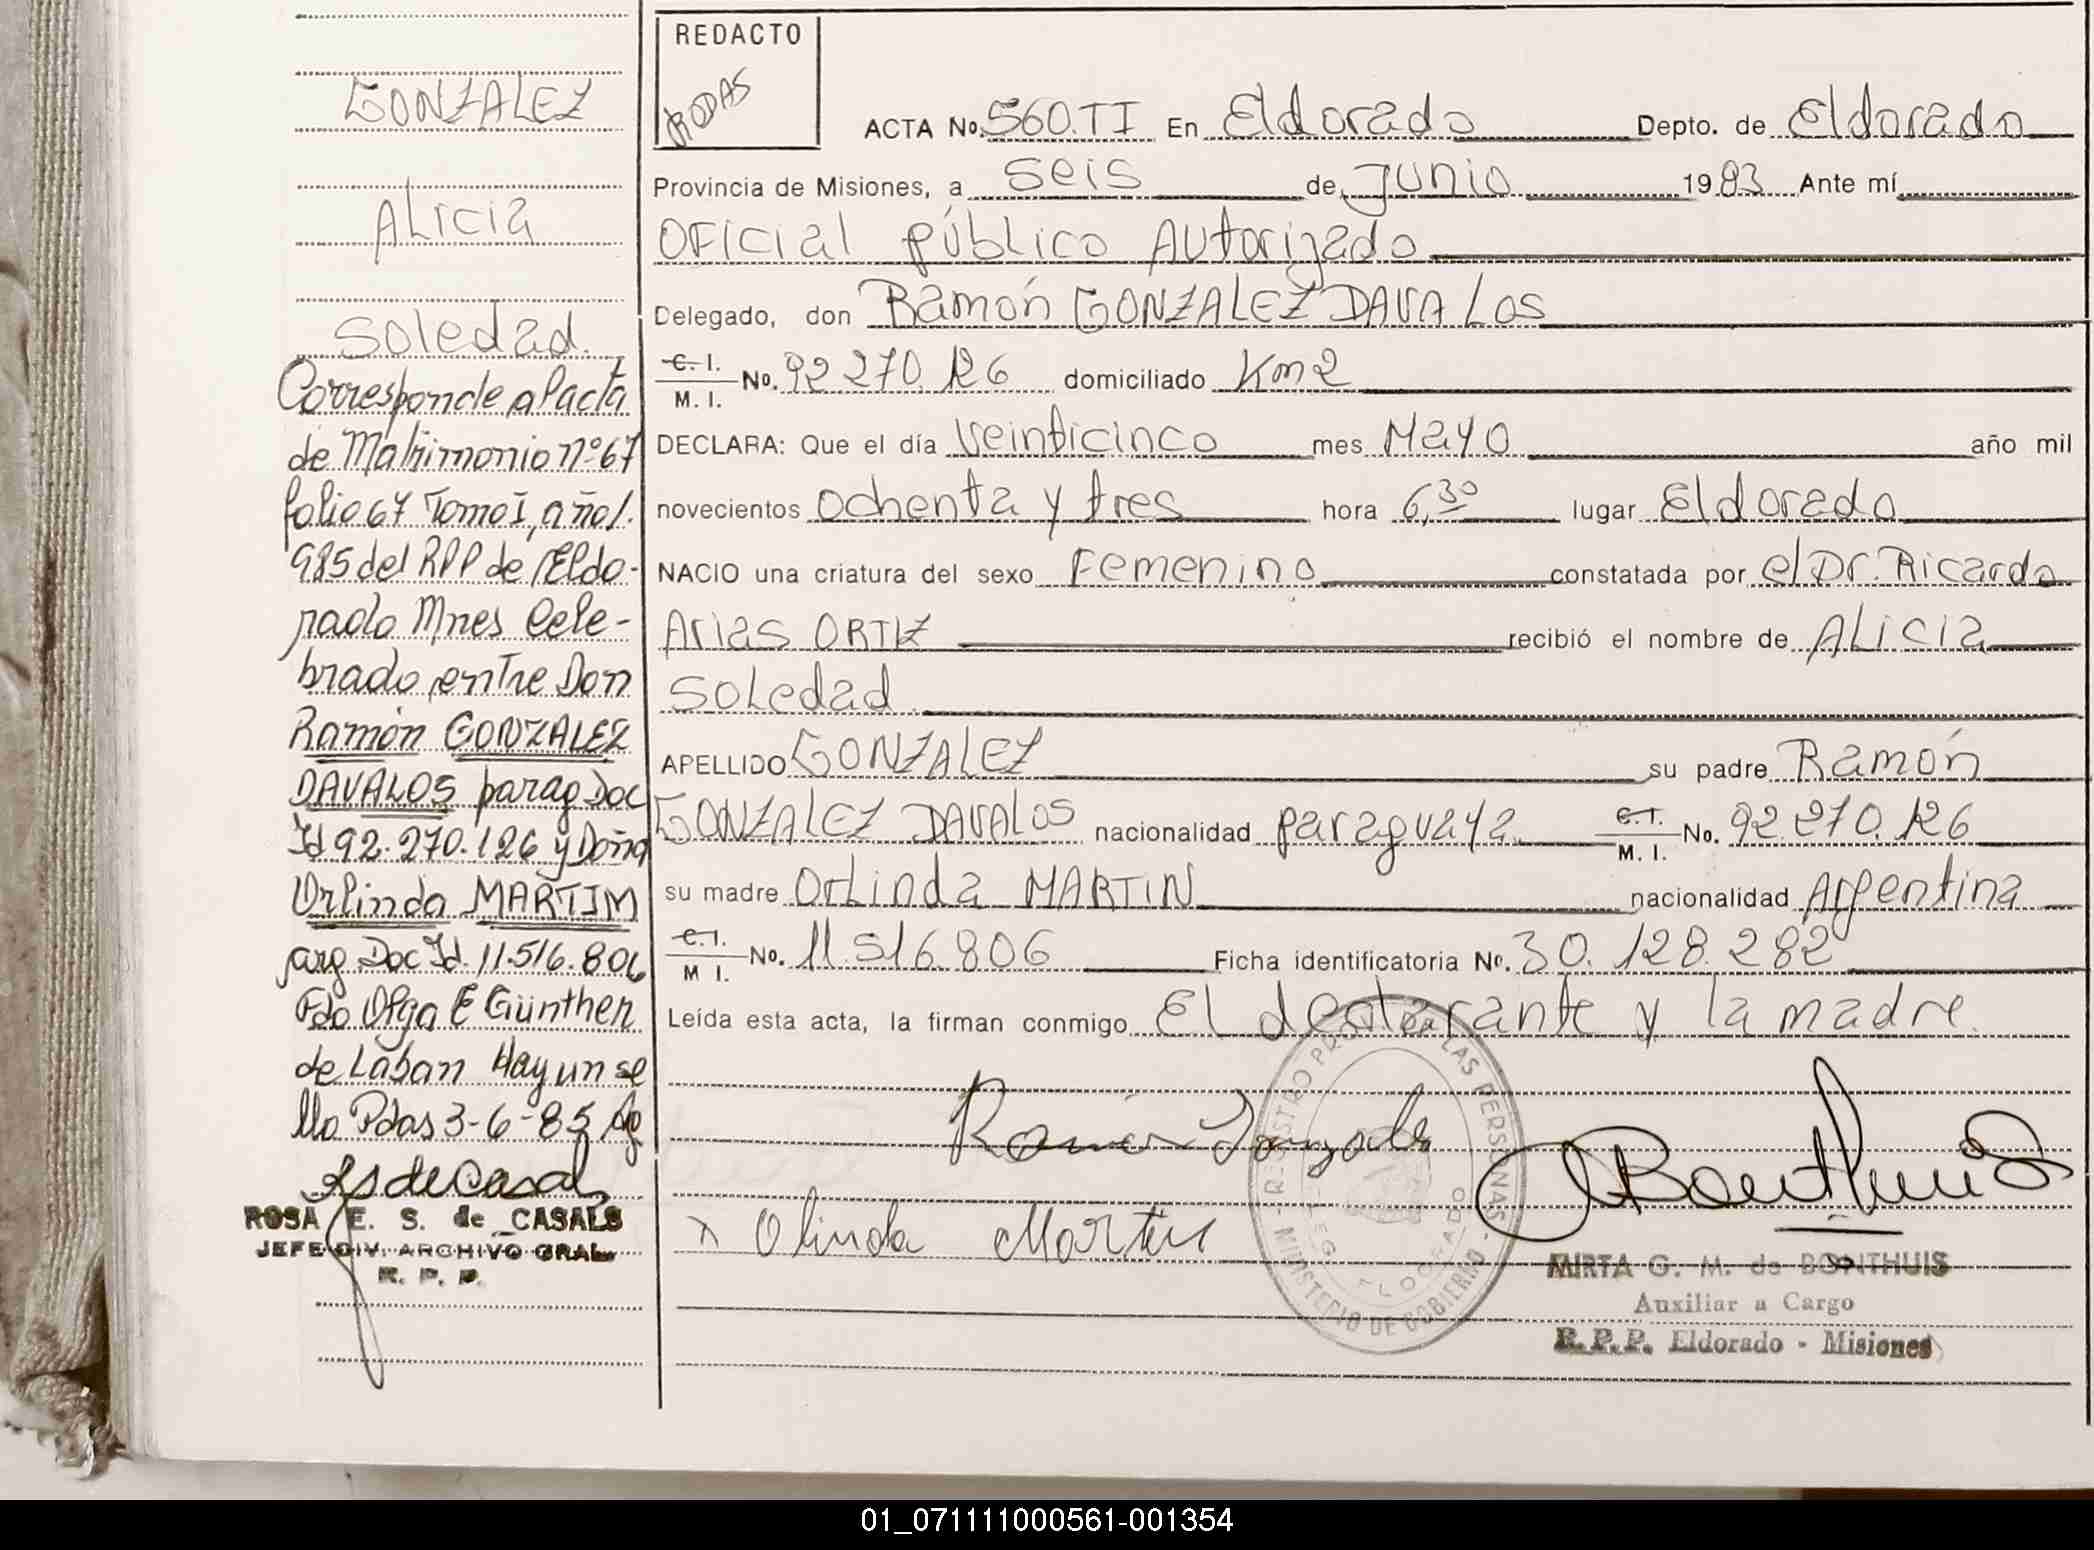 GONZALEZ
ALicia
Soledad.
Corresponde al acta
de Matrimonio nº 67
folio 67 Tomo I, año 1.
985 del RPP de Eldo-
rado Mnes Cele-
brado entre Don
Ramón GONZALEZ
DAVALOS parag Doc
Id 92.270.126 y Doña
Orlinda MARTIM
arg Doc Id. 11.516.806
Fdo Olga E Günther
de Laban Hay un se
llo Pdas 3-6-85
ROSA E. S. de CASALS
JEFE DIV. ARCHIVO GRAL.
R. P. P.
REDACTO
RODAS
ACTA No. 560.TI En Eldorado Depto. de Eldorado
Provincia de Misiones, a seis de Junio 1983 Ante mí
Oficial público Autorizado
Delegado, don Ramón GONZALEZ DAVALOS
C. I. / M. I. No. 92 270.126 domiciliado Km2
DECLARA: Que el día veinticinco mes Mayo año mil
novecientos ochenta y tres hora 6,30 lugar Eldorado
NACIO una criatura del sexo Femenino constatada por el Dr. Ricardo
Arias ORTIZ recibió el nombre de ALicia
Soledad
APELLIDO GONZALEZ su padre Ramón
GONZALEZ DAVALOS nacionalidad paraguaya C.I. / M. I. No. 92.270.126
su madre OrLinda MARTIN nacionalidad Argentina
C.I. / M I. No. 11.516.806 Ficha identificatoria No. 30.128.282
Leída esta acta, la firman conmigo El declarante y la madre.
Ramón Gonzalez
x Olinda Martin
Bonthuis
REGISTRO PROV. DE LAS PERSONAS - MINISTERIO DE GOBIERNO -
MIRTA G. M. de BONTHUIS
Auxiliar a Cargo
R.P.P. Eldorado - Misiones
01_071111000561-001354